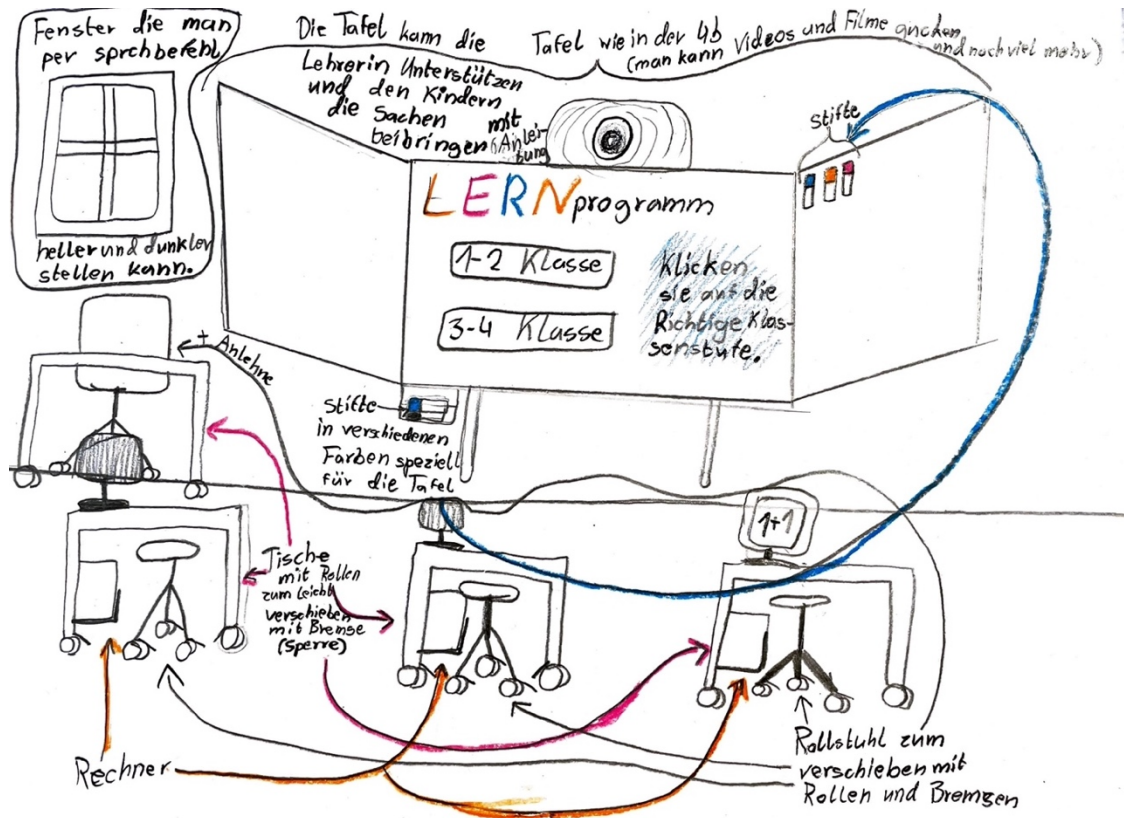 Fenster die man
per sprchbefehl
heller und dunkler
stellen kann.
Die Tafel kann die
Lehrerin Unterstützen
und den Kindern
die Sachen
beibringen mit
Tafel wie in der 4b
(man kann Videos und Filme gucken
und noch viel mehr)
Stifte
LERNprogramm
1-2 Klasse
3-4 Klasse
Klicken
sie auf die
Richtige Klas-
senstufe.
+ Anlehne
Stifte
in verschiedenen
Farben speziell
für die Tafel
1+1
Tische
mit Rollen
zum Leicht
verschieben
mit Bremse
(Sperre)
Rechner
Rollstuhl zum
verschieben mit
Rollen und Bremsen